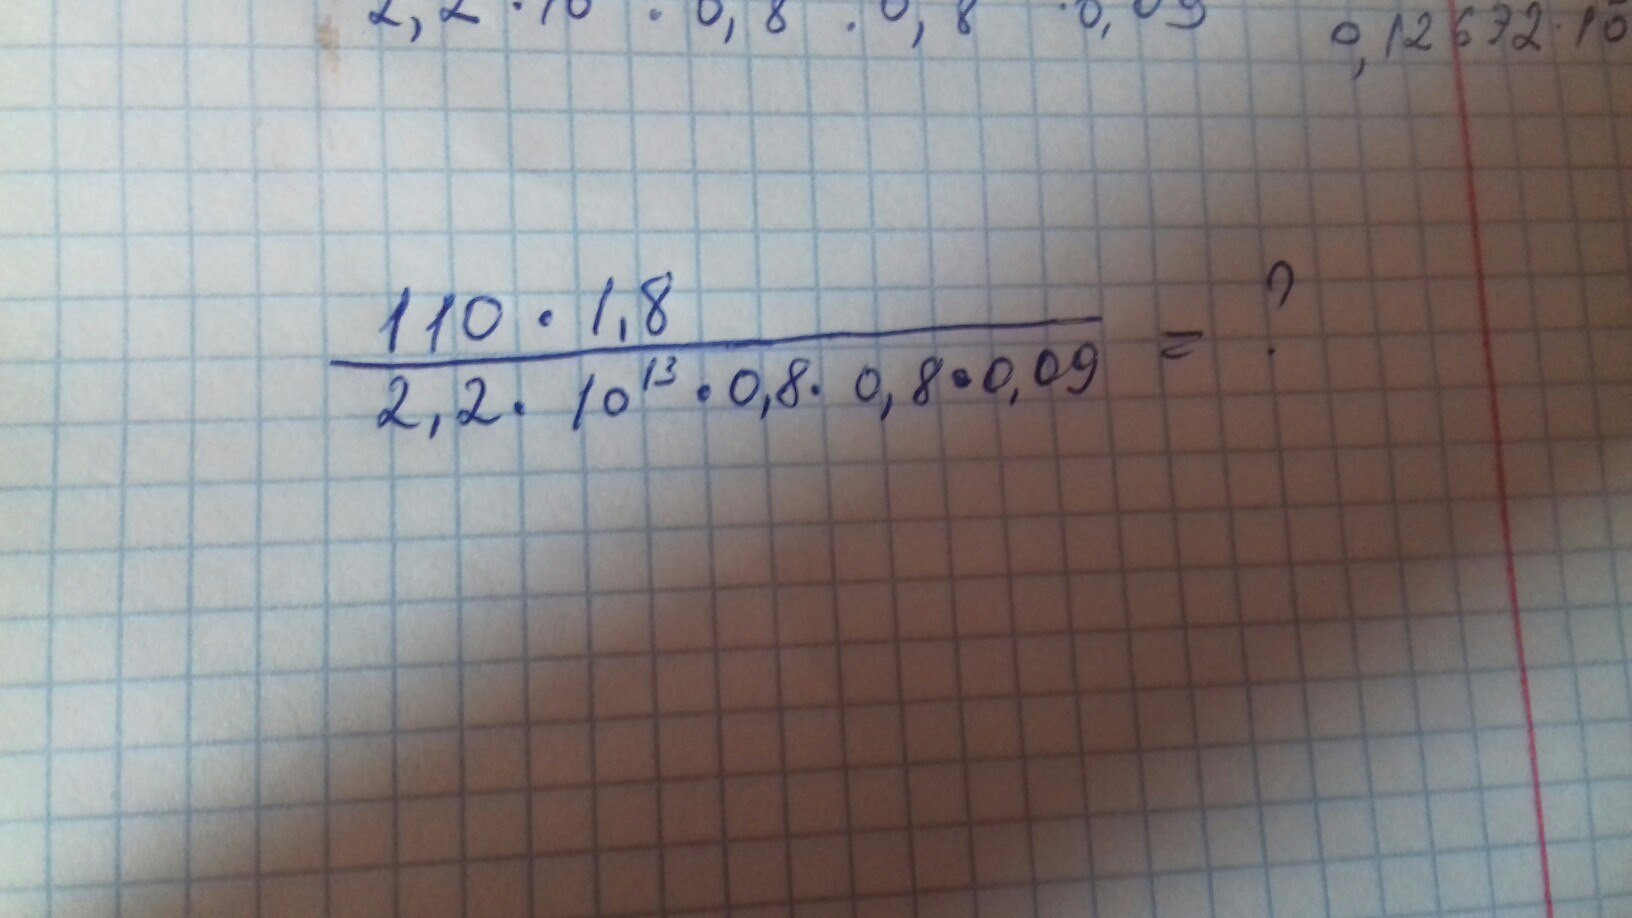 2,2 · 10 · 0,8 · 0,8 · 0,09 0,12672·10
110 · 1,8
2,2 · 10¹³ · 0,8 · 0,8 · 0,09 = ?